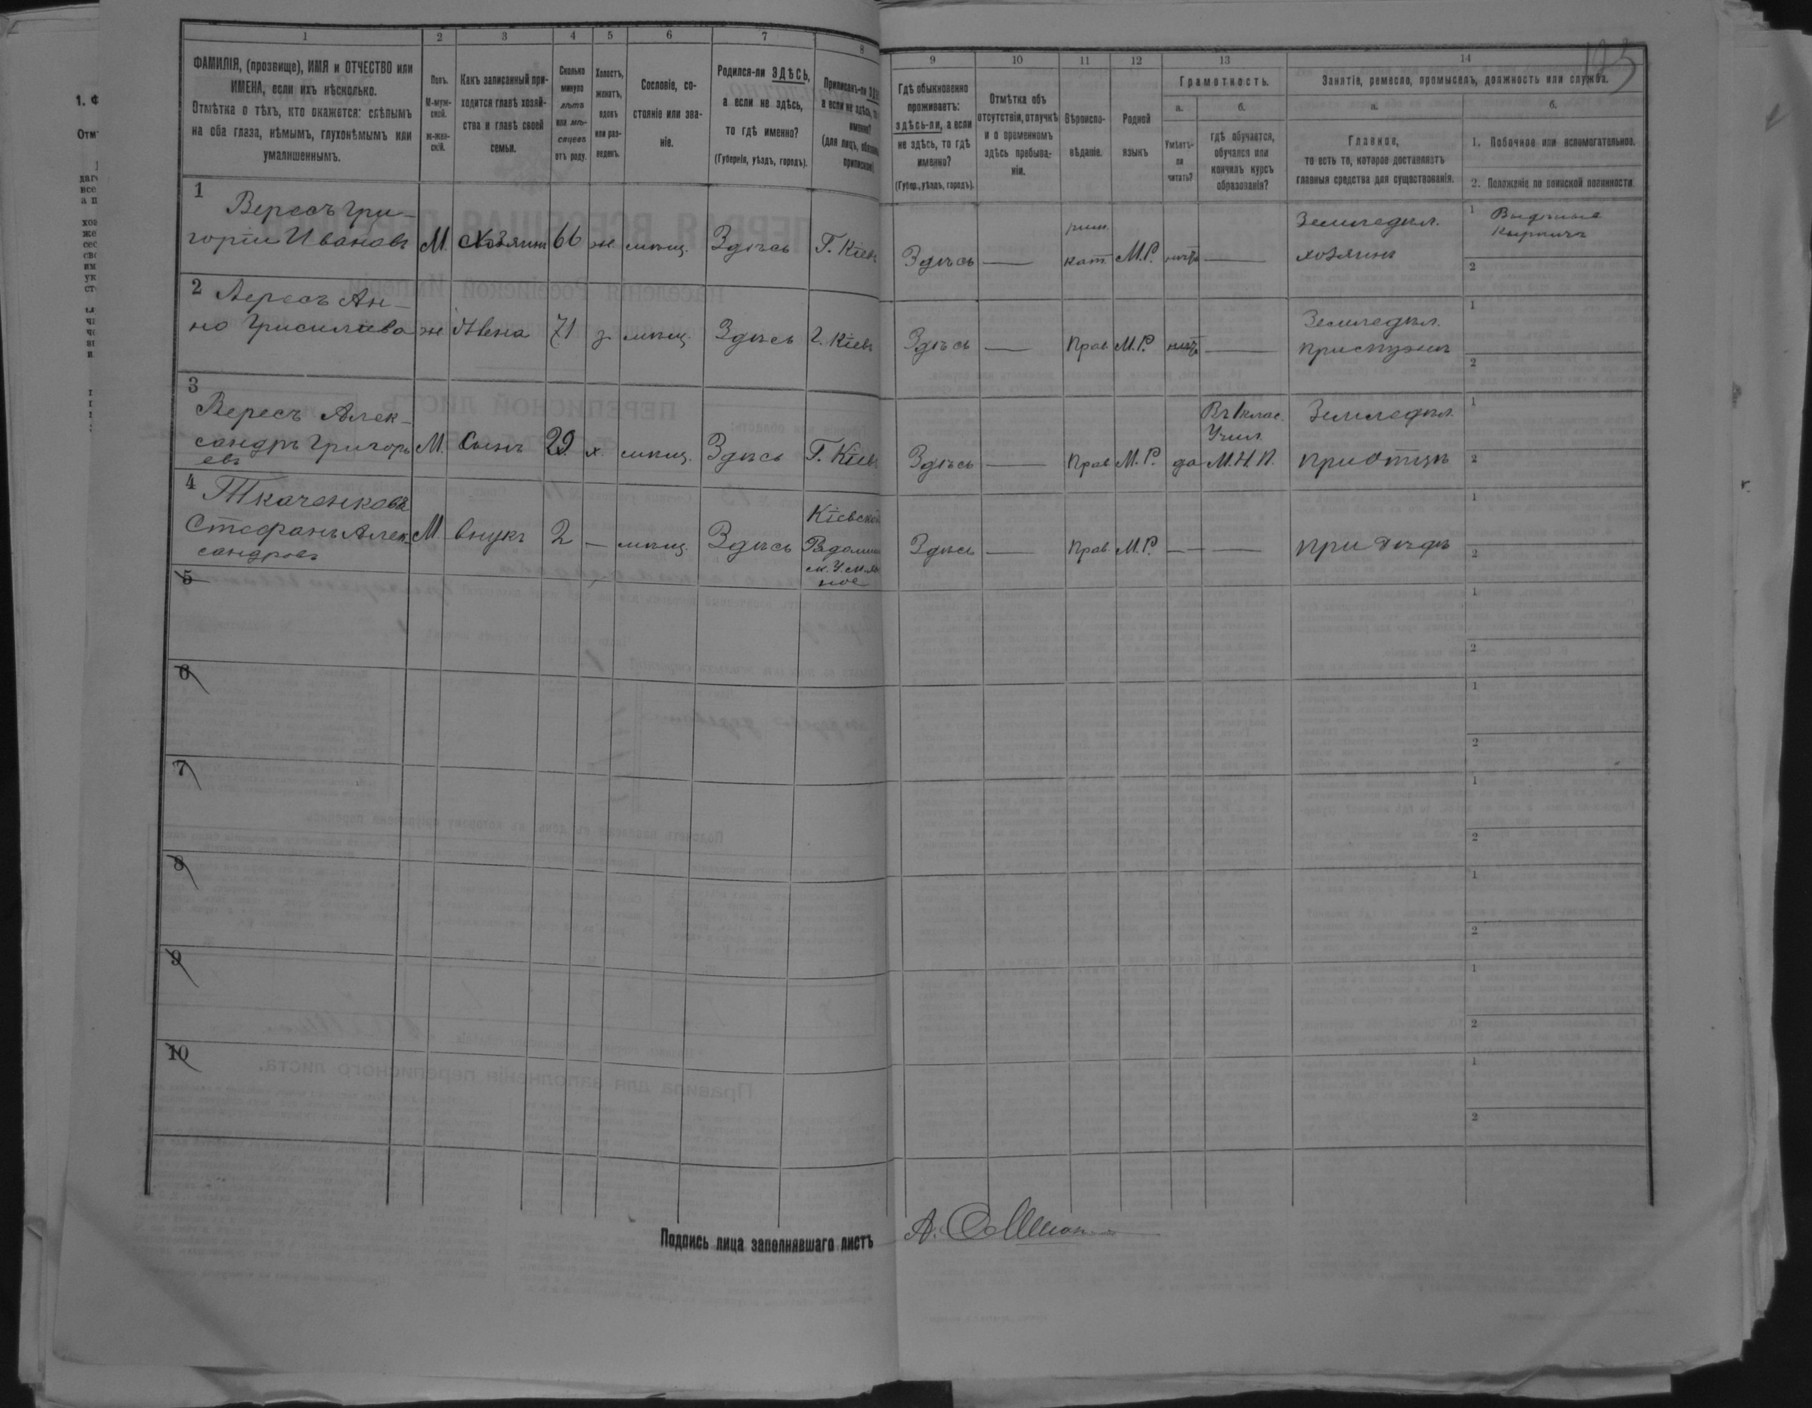 1 2 3 4 5 6 7 8
ФАМИЛІЯ, (прозвище), ИМЯ и ОТЧЕСТВО или
ИМЕНА, если ихъ нѣсколько.
Отмѣтка о тѣхъ, кто окажется: слѣпымъ
на оба глаза, нѣмымъ, глухонѣмымъ или
умалишеннымъ.
Полъ.
М-муж-
ской.
ж-жен-
скій.
Какъ записанный при-
ходится главѣ хозяй-
ства и главѣ своей
семьи.
Сколько
минуло
лѣтъ
или мѣ-
сяцевъ
отъ роду.
Холостъ,
женатъ,
вдовъ
или раз-
веденъ.
Сословіе, со-
стояніе или зва-
ніе.
Родился-ли ЗДѢСЬ,
а если не здѣсь,
то гдѣ именно?
(Губернія, уѣздъ, городъ).
Приписанъ-ли
а если не здѣсь,
именно?
(для лицъ,
9 10 11 12 13 14
Гдѣ обыкновенно
проживаетъ:
здѣсь-ли, а если
не здѣсь, то гдѣ
именно?
(Губер., уѣздъ, городъ).
Отмѣтка объ
отсутствіи, отлучкѣ
и о временномъ
здѣсь пребыва-
ніи.
Вѣроиспо-
вѣданіе.
Родной
языкъ
Грамотность.
а. б.
Умѣетъ-
ли
читать?
гдѣ обучается,
обучался или
кончилъ курсъ
образованія?
Занятіе, ремесло, промыселъ, должность или служба.
а. б.
Главное,
то есть то, которое доставляетъ
главныя средства для существованія.
1. Побочное или вспомогательное.
2. Положеніе по воинской повинности
1 Вересъ Гри-
горій Ивановъ М. Хозяинъ 66 ж мѣщ. Здѣсь Г. Кіев
Здѣсь — рим. кат М.Р. — Земледѣл. хозяинъ
1
2
2 Вересъ Ан-
на ж Жена 71 з. мѣщ. Здѣсь Г. Кіевъ
Здѣсь — Прав М.Р. — Земледѣл.
1
2
3 Вересъ Алек-
сандръ Григорь
евъ М. Сынъ 29 х. мѣщ. Здѣсь Г. Кіевъ
Здѣсь — Прав М.Р. да Въ 1 клас. Учил. М.Н.П. Земледѣл. при отцѣ
1
2
4 Ткаченковъ
Стефанъ Алек-
сандровъ М. внукъ 2 — мѣщ. Здѣсь Кіевской
Здѣсь — Прав М.Р. — — при дѣдѣ
1
2
5
1
2
6
1
2
7
1
2
8
1
2
9
1
2
10
1
2
Подпись лица заполнявшаго листъ